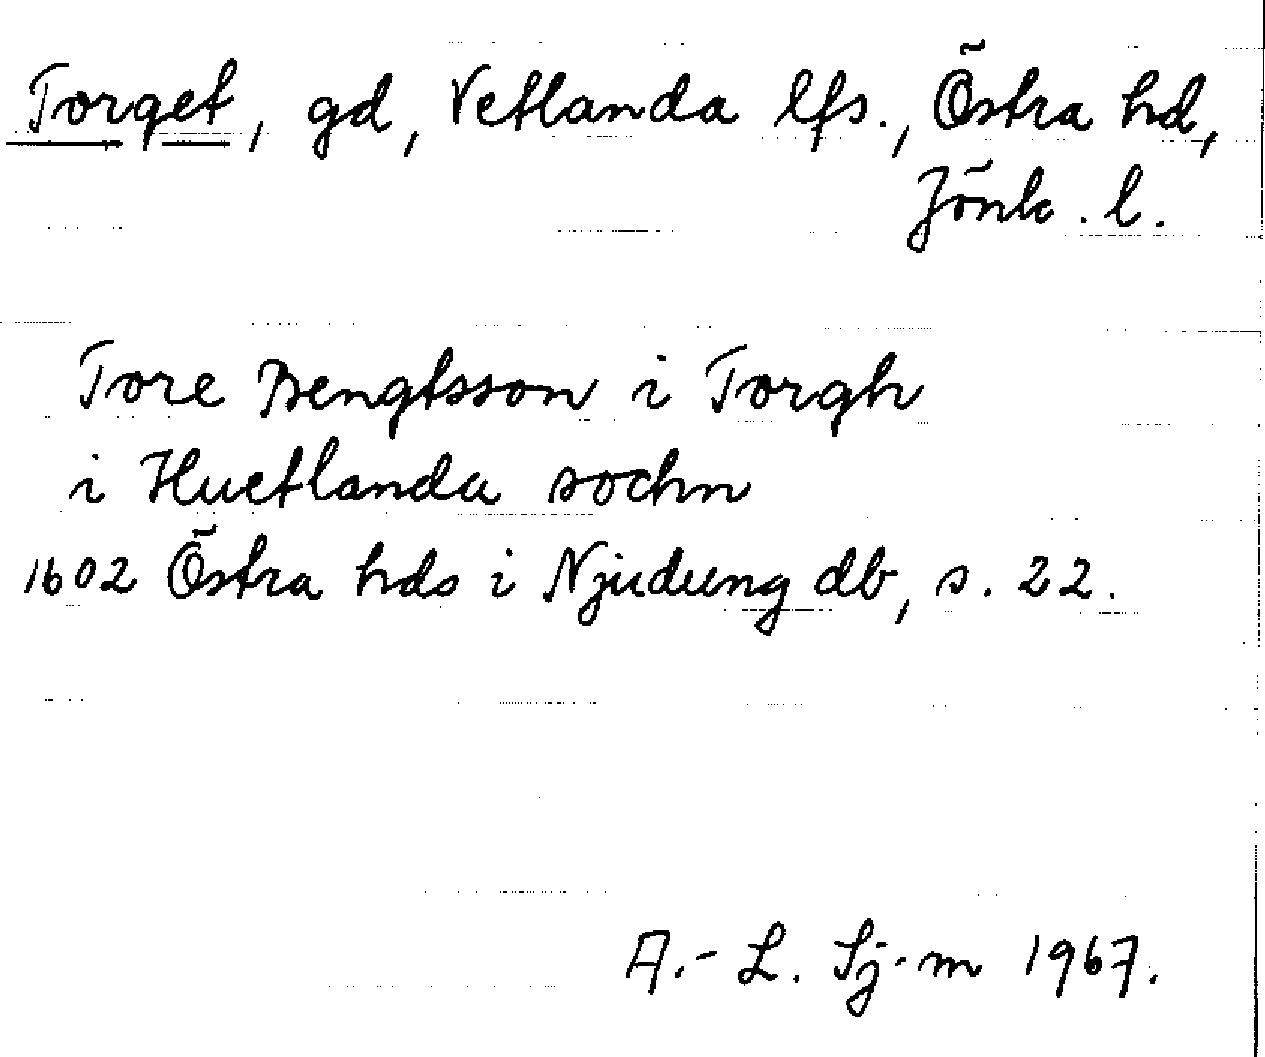 Torget, gd, Vetlanda lfs., Östra hd,
Jönk. l.
Tore Bengtsson i Torgh
i Huetlanda sochn
1602 Östra hds i Njudung db, s. 22.
A.-L. Sj-m 1967.